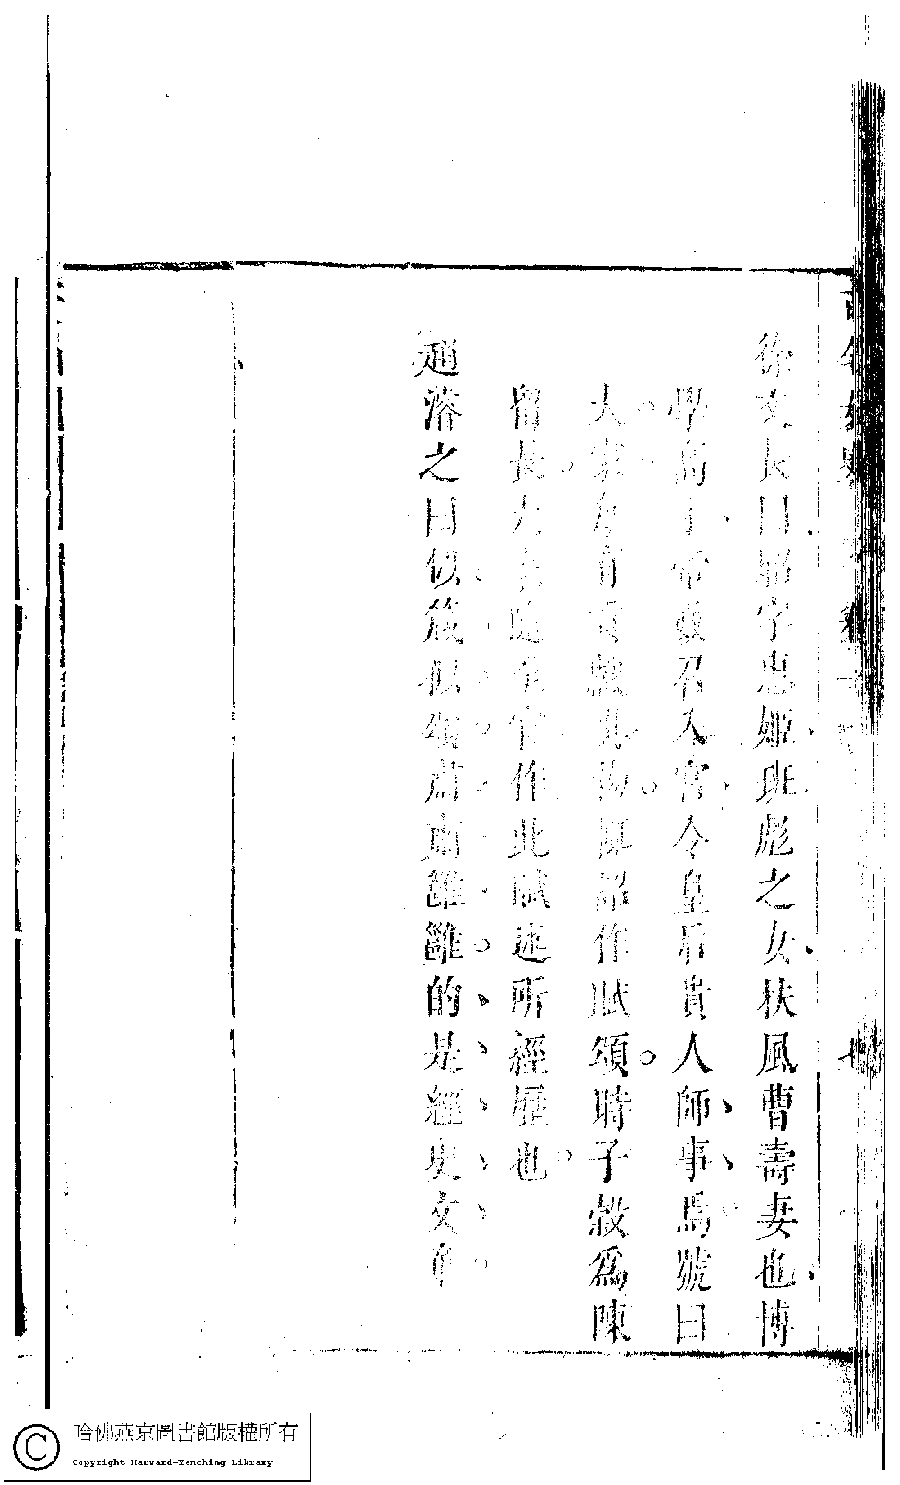 徐文長曰昭字惠姬班彪之女扶風曹壽妻也博
學高才帝數召入宮令皇后貴人師事焉號曰
大家每有貢獻異物輒詔作賦頌時子穀為陳
留長大家隨至官作此賦述所經歷也
趙濬之曰似箴似頌肅肅雝雝的是經史文章
哈佛燕京圖書館版權所有
Copyright Harvard-Yenching Library